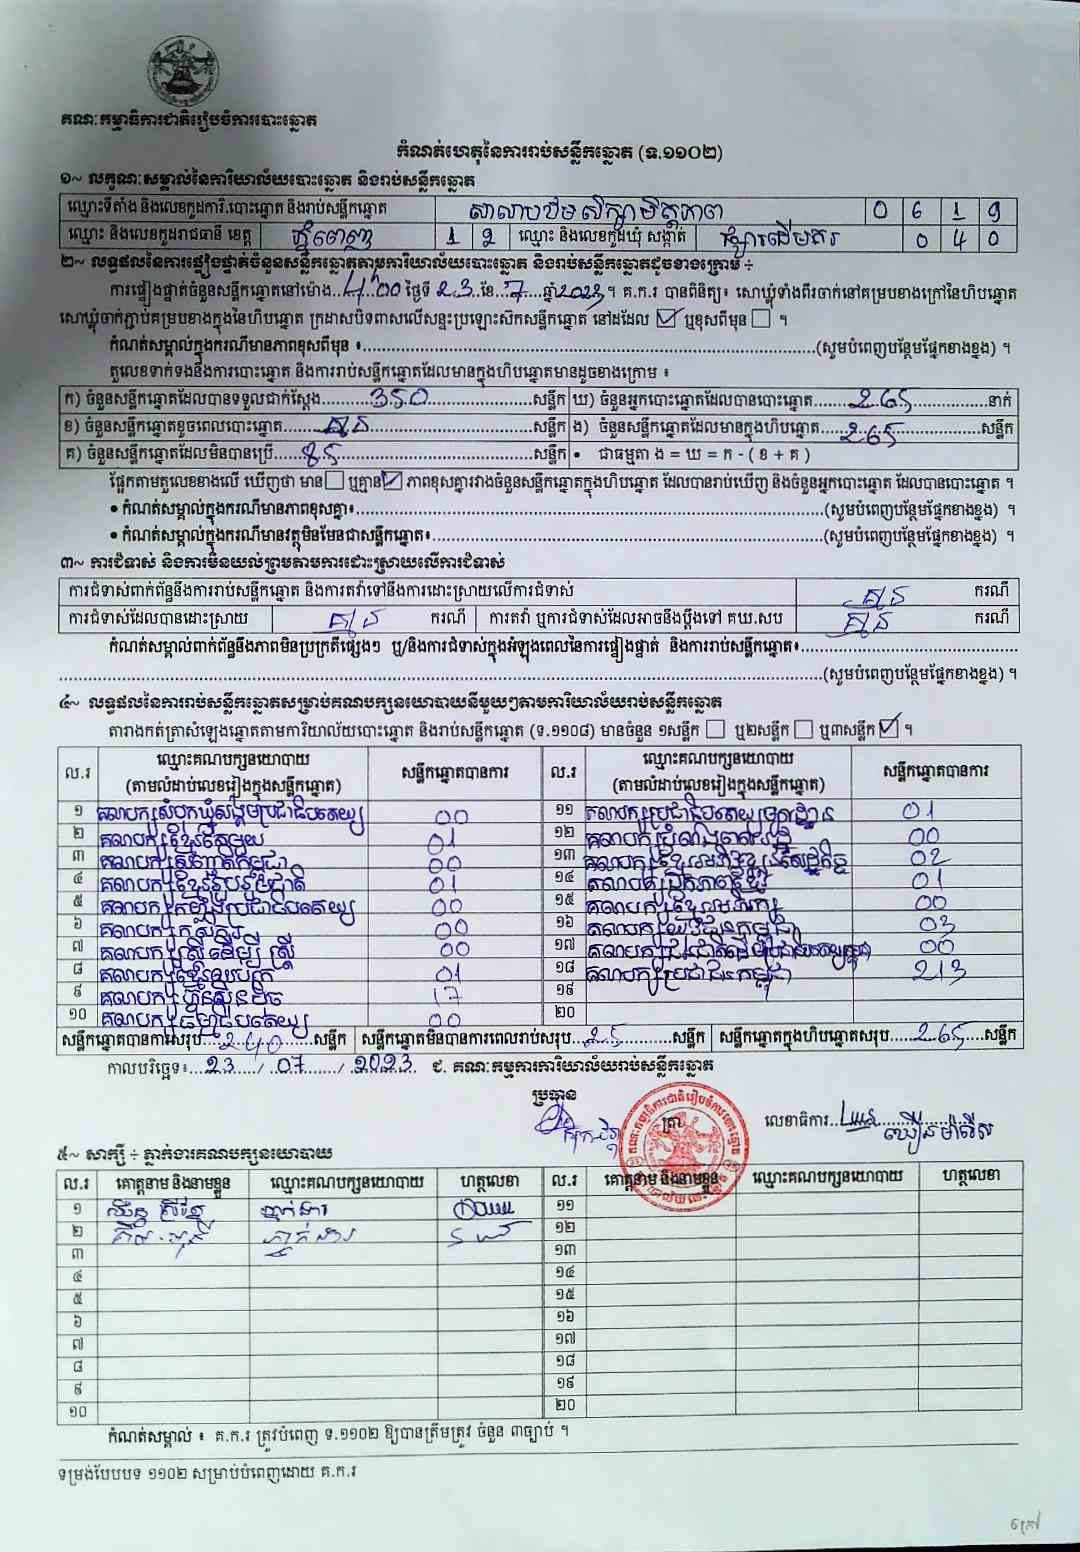 គណៈកម្មាធិការជាតិរៀបចំការបោះឆ្នោត
កំណត់ហេតុនៃការរាប់សន្លឹកឆ្នោត (ទ.១១០២)
១~ លក្ខណៈសម្គាល់នៃការិយាល័យបោះឆ្នោត និងរាប់សន្លឹកឆ្នោត
ឈ្មោះទីតាំង និងលេខកូដការិ.បោះឆ្នោត និងរាប់សន្លឹកឆ្នោត សាលាបឋមសិក្សាមិត្តភាព 0 6 1 9
ឈ្មោះ និងលេខកូដរាជធានី ខេត្ត ភ្នំពេញ 1 2 ឈ្មោះ និងលេខកូដឃុំ សង្កាត់ ផ្សារដើមគរ 0 4 0
២~ លទ្ធផលនៃការផ្ទៀងផ្ទាត់ចំនួនសន្លឹកឆ្នោតតាមការិយាល័យបោះឆ្នោត និងរាប់សន្លឹកឆ្នោតដូចខាងក្រោម ÷
ការផ្ទៀងផ្ទាត់ចំនួនសន្លឹកឆ្នោតនៅម៉ោង 4h00 ថ្ងៃទី 23 ខែ 7 ឆ្នាំ 2023 ។ គ.ក.រ បានពិនិត្យ៖ សោឃ្លុំទាំងពីរចាក់នៅគម្របខាងក្រៅនៃហិបឆ្នោត
សោឃ្លុំចាក់ភ្ជាប់គម្របខាងក្នុងនៃហិបឆ្នោត ក្រដាសបិទពាសលើសន្ទះប្រឡោះស៊កសន្លឹកឆ្នោត នៅដដែល ☑ ឬខុសពីមុន ☐ ។
កំណត់សម្គាល់ក្នុងករណីមានភាពខុសពីមុន ៖ (សូមបំពេញបន្ថែមផ្នែកខាងខ្នង) ។
តួលេខទាក់ទងនឹងការបោះឆ្នោត និងការរាប់សន្លឹកឆ្នោតដែលមានក្នុងហិបឆ្នោតមានដូចខាងក្រោម ៖
ក) ចំនួនសន្លឹកឆ្នោតដែលបានទទួលជាក់ស្តែង 350 សន្លឹក ឃ) ចំនួនអ្នកបោះឆ្នោតដែលបានបោះឆ្នោត 265 នាក់
ខ) ចំនួនសន្លឹកឆ្នោតខូចពេលបោះឆ្នោត គ្មាន សន្លឹក ង) ចំនួនសន្លឹកឆ្នោតដែលមានក្នុងហិបឆ្នោត 265 សន្លឹក
គ) ចំនួនសន្លឹកឆ្នោតដែលមិនបានប្រើ 85 សន្លឹក • ជាធម្មតា ង = ឃ = ក - ( ខ + គ )
ផ្អែកតាមតួលេខខាងលើ ឃើញថា មាន ☐ ឬគ្មាន ☑ ភាពខុសគ្នារវាងចំនួនសន្លឹកឆ្នោតក្នុងហិបឆ្នោត ដែលបានរាប់ឃើញ និងចំនួនអ្នកបោះឆ្នោត ដែលបានបោះឆ្នោត ។
• កំណត់សម្គាល់ក្នុងករណីមានភាពខុសគ្នា៖ (សូមបំពេញបន្ថែមផ្នែកខាងខ្នង) ។
• កំណត់សម្គាល់ក្នុងករណីមានវត្ថុមិនមែនជាសន្លឹកឆ្នោត៖ (សូមបំពេញបន្ថែមផ្នែកខាងខ្នង) ។
៣~ ការជំទាស់ និងការមិនយល់ព្រមតាមការដោះស្រាយលើការជំទាស់
ការជំទាស់ពាក់ព័ន្ធនឹងការរាប់សន្លឹកឆ្នោត និងការតវ៉ាទៅនឹងការដោះស្រាយលើការជំទាស់ គ្មាន ករណី
ការជំទាស់ដែលបានដោះស្រាយ គ្មាន ករណី ការតវ៉ា ឬការជំទាស់ដែលអាចនឹងប្តឹងទៅ គឃ.សប គ្មាន ករណី
កំណត់សម្គាល់ពាក់ព័ន្ធនឹងភាពមិនប្រក្រតីផ្សេងៗ ឬ/និងការជំទាស់ក្នុងអំឡុងពេលនៃការផ្ទៀងផ្ទាត់ និងការរាប់សន្លឹកឆ្នោត៖
(សូមបំពេញបន្ថែមផ្នែកខាងខ្នង) ។
៤~ លទ្ធផលនៃការរាប់សន្លឹកឆ្នោតសម្រាប់គណបក្សនយោបាយនីមួយៗតាមការិយាល័យរាប់សន្លឹកឆ្នោត
តារាងកត់ត្រាសំឡេងឆ្នោតតាមការិយាល័យបោះឆ្នោត និងរាប់សន្លឹកឆ្នោត (ទ.១១០៨) មានចំនួន ១សន្លឹក ☐ ឬ២សន្លឹក ☐ ឬ៣សន្លឹក ☑ ។
ល.រ ឈ្មោះគណបក្សនយោបាយ (តាមលំដាប់លេខរៀងក្នុងសន្លឹកឆ្នោត) សន្លឹកឆ្នោតបានការ ល.រ ឈ្មោះគណបក្សនយោបាយ (តាមលំដាប់លេខរៀងក្នុងសន្លឹកឆ្នោត) សន្លឹកឆ្នោតបានការ
១ គណបក្សសំបុកឃ្មុំសង្គមប្រជាធិបតេយ្យ 00 ១១ គណបក្សប្រជាធិបតេយ្យមូលដ្ឋាន 01
២ គណបក្សខ្មែរតែមួយ 01 ១២ គណបក្ស 00
៣ គណបក្សសញ្ជាតិកម្ពុជា 00 ១៣ គណបក្សខ្មែរអភិវឌ្ឍន៍សេដ្ឋកិច្ច 02
៤ គណបក្សខ្មែររួបរួមជាតិ 01 ១៤ គណបក្សឯកភាពជាតិខ្មែរ 01
៥ គណបក្សកម្លាំងប្រជាធិបតេយ្យ 00 ១៥ គណបក្សខ្មែរអភិរក្ស 00
៦ គណបក្សកសិករ 00 ១៦ គណបក្សយុវជនកម្ពុជា 03
៧ គណបក្សស្រ្តីដើម្បីស្រ្តី 00 ១៧ គណបក្ស 00
៨ គណបក្សខ្មែរឈប់ក្រ 01 ១៨ គណបក្សប្រជាជនកម្ពុជា 213
៩ គណបក្សហ៊្វុនស៊ិនប៉ិច 17 ១៩
១០ គណបក្សធម្មាធិបតេយ្យ 00 ២០
សន្លឹកឆ្នោតបានការសរុប 240 សន្លឹក សន្លឹកឆ្នោតមិនបានការពេលរាប់សរុប 25 សន្លឹក សន្លឹកឆ្នោតក្នុងហិបឆ្នោតសរុប 265 សន្លឹក
កាលបរិច្ឆេទ៖ 23 / 07 / 2023 ជ. គណៈកម្មការការិយាល័យរាប់សន្លឹកឆ្នោត
ប្រធាន ត្រា លេខាធិការ
៥~ សាក្សី ÷ ភ្នាក់ងារគណបក្សនយោបាយ
ល.រ គោត្តនាម និងនាមខ្លួន ឈ្មោះគណបក្សនយោបាយ ហត្ថលេខា ល.រ គោត្តនាម និងនាមខ្លួន ឈ្មោះគណបក្សនយោបាយ ហត្ថលេខា
១ ភ្នាក់ងារ ១១
២ ភ្នាក់ងារ ១២
៣ ១៣
៤ ១៤
៥ ១៥
៦ ១៦
៧ ១៧
៨ ១៨
៩ ១៩
១០ ២០
កំណត់សម្គាល់ ៖ គ.ក.រ ត្រូវបំពេញ ទ.១១០២ ឱ្យបានត្រឹមត្រូវ ចំនួន ៣ច្បាប់ ។
ទម្រង់បែបបទ ១១០២ សម្រាប់បំពេញដោយ គ.ក.រ
ក្រៅ